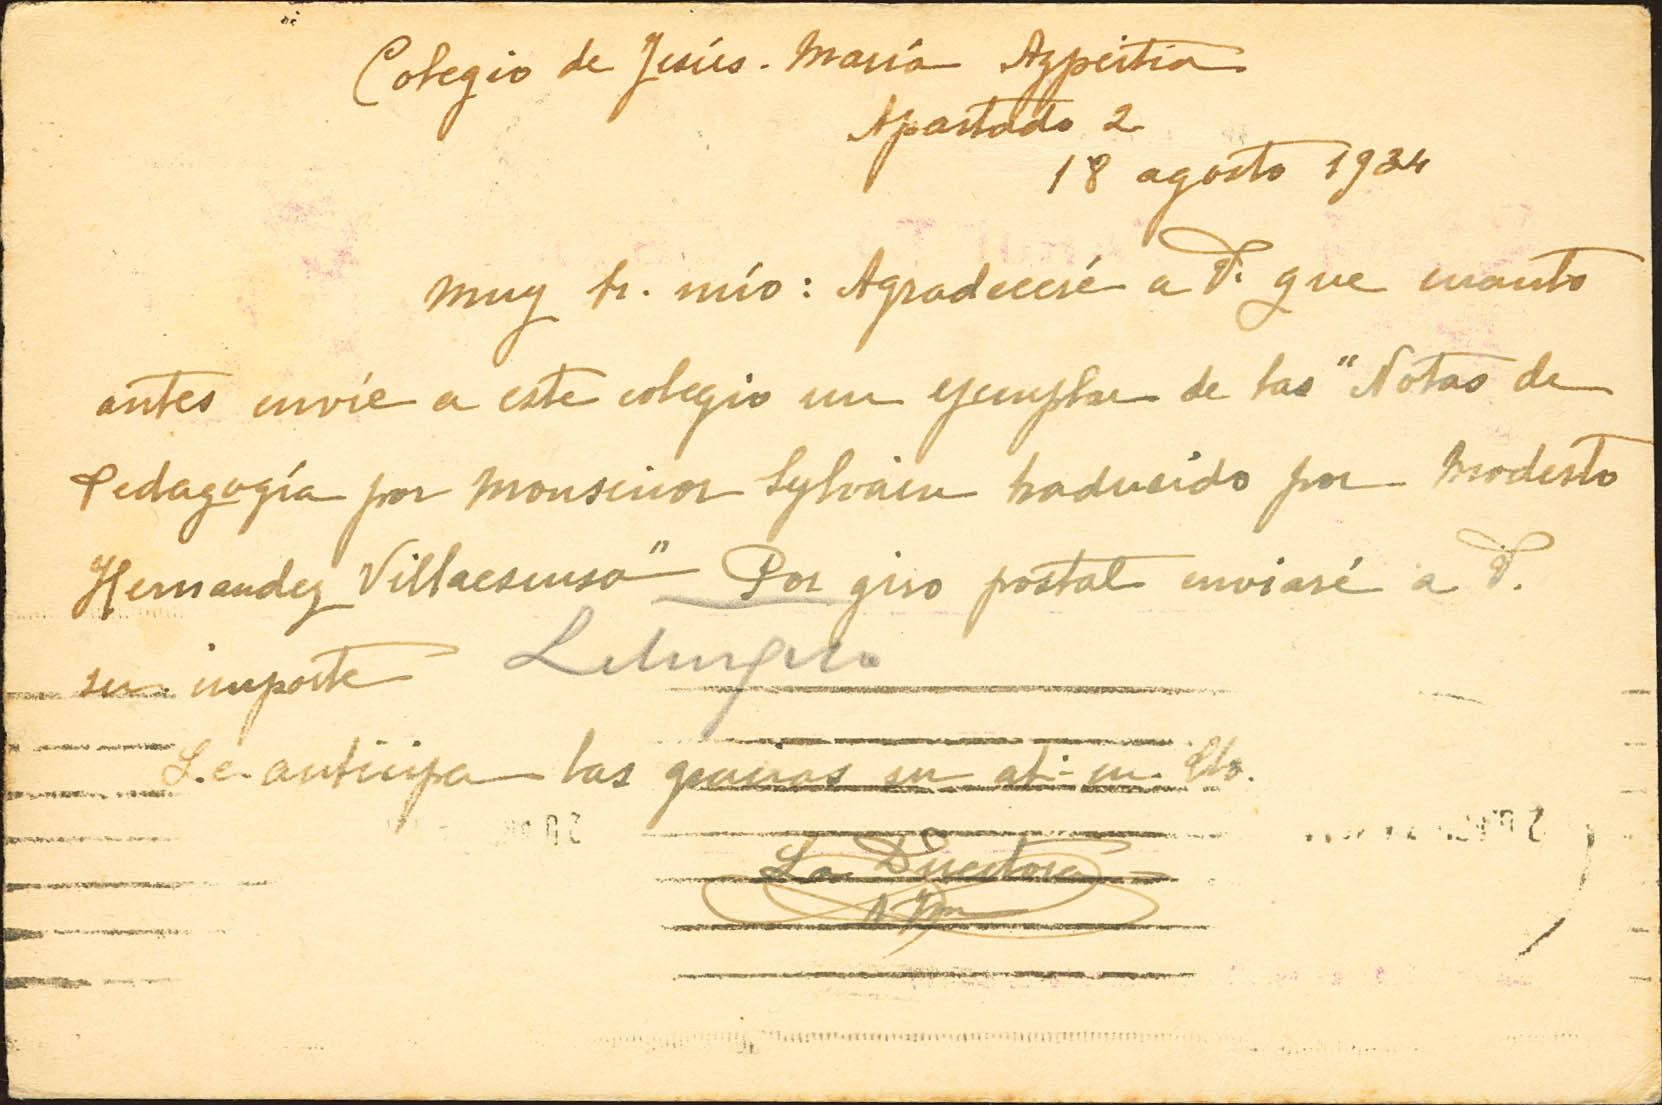 Colegio de Jesús-María Azpeitia
Apartado 2
18 agosto 1934
Muy Sr. mío: Agradeceré a V. que cuanto
antes envíe a este colegio un ejemplar de las "Notas de
Pedagogía por Monseñor Sylvain traducido por Modesto
Hernandez Villaescusa" Por giro postal enviaré a V.
su importe
Le anticipa las gracias su at. su
La Directora